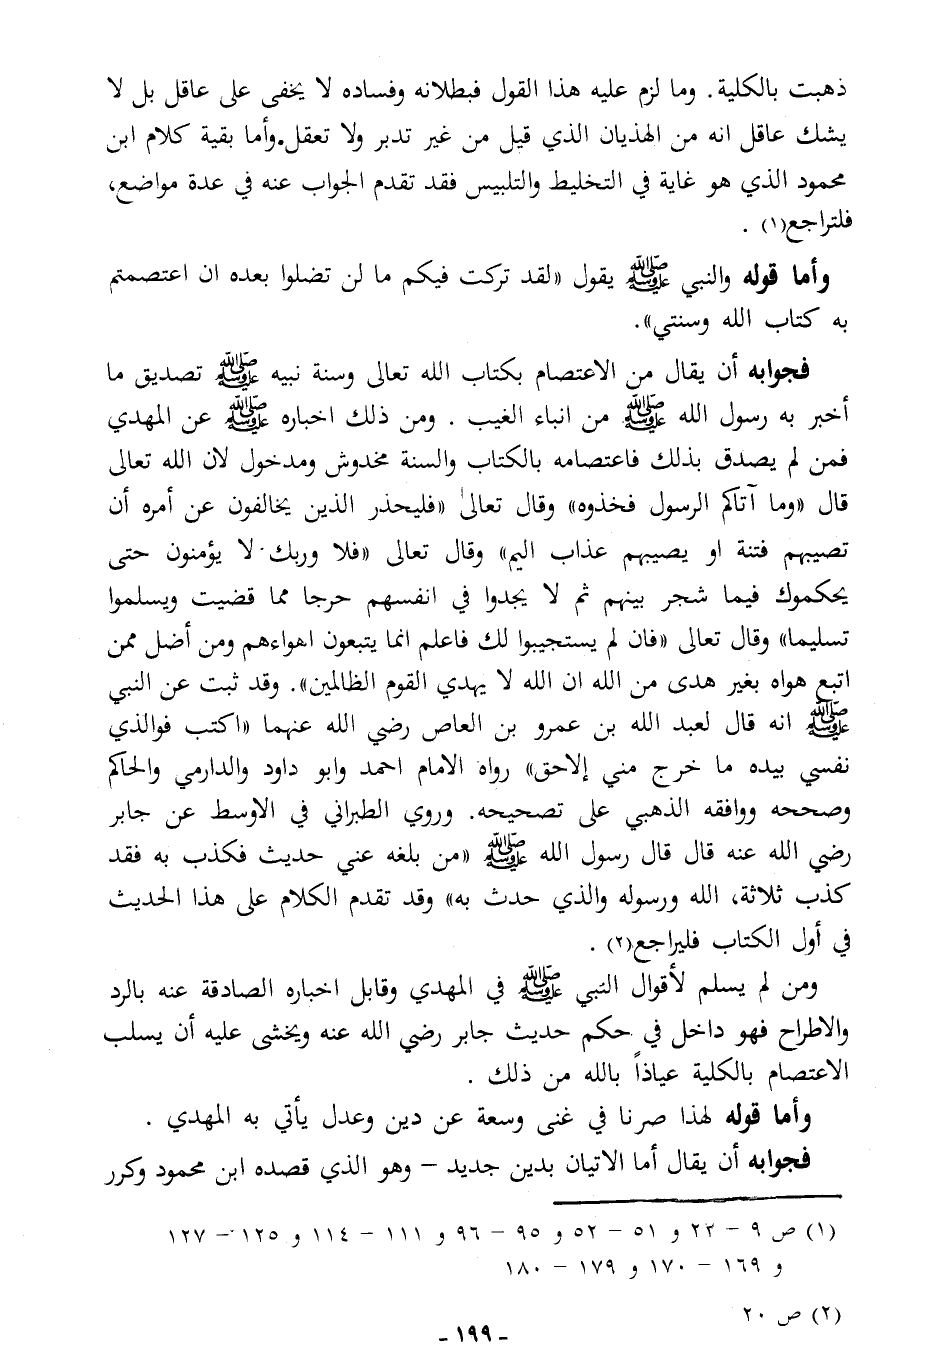 ذهبت بالكلية. وما لزم عليه هذا القول فبطلانه وفساده لا يخفى على عاقل بل لا
يشك عاقل انه من الهذيان الذي قيل من غير تدبر ولا تعقل. وأما بقية كلام ابن
محمود الذي هو غاية في التخليط والتلبيس فقد تقدم الجواب عنه في عدة مواضع،
فلتراجع(١) .
وأما قوله والنبي ﷺ يقول «لقد تركت فيكم ما لن تضلوا بعده ان اعتصمتم
به كتاب الله وسنتي».
فجوابه أن يقال من الاعتصام بكتاب الله تعالى وسنة نبيه ﷺ تصديق ما
أخبر به رسول الله ﷺ من انباء الغيب . ومن ذلك اخباره ﷺ عن المهدي
فمن لم يصدق بذلك فاعتصامه بالكتاب والسنة مخدوش ومدخول لان الله تعالى
قال «وما آتاكم الرسول فخذوه» وقال تعالىٰ «فليحذر الذين يخالفون عن أمره أن
تصيبهم فتنة او يصيبهم عذاب اليم» وقال تعالى «فلا وربك لا يؤمنون حتى
يحكموك فيما شجر بينهم ثم لا يجدوا في انفسهم حرجا مما قضيت ويسلموا
تسليما» وقال تعالى «فان لم يستجيبوا لك فاعلم انما يتبعون اهواءهم ومن أضل ممن
اتبع هواه بغير هدى من الله ان الله لا يهدي القوم الظالمين». وقد ثبت عن النبي
ﷺ انه قال لعبد الله بن عمرو بن العاص رضي الله عنهما «اكتب فوالذي
نفسي بيده ما خرج مني إلاحق» رواه الامام احمد وابو داود والدارمي والحاكم
وصححه ووافقه الذهبي على تصحيحه. وروي الطبراني في الاوسط عن جابر
رضي الله عنه قال قال رسول الله ﷺ «من بلغه عني حديث فكذب به فقد
كذب ثلاثة، الله ورسوله والذي حدث به» وقد تقدم الكلام على هذا الحديث
في أول الكتاب فليراجع(٢) .
ومن لم يسلم لأقوال النبي ﷺ في المهدي وقابل اخباره الصادقة عنه بالرد
والاطراح فهو داخل في حكم حديث جابر رضي الله عنه ويخشى عليه أن يسلب
الاعتصام بالكلية عياذاً بالله من ذلك .
وأما قوله لهذا صرنا في غنى وسعة عن دين وعدل يأتي به المهدي .
فجوابه أن يقال أما الاتيان بدين جديد – وهو الذي قصده ابن محمود وكرر
(١) ص ٩ – ٢٣ و ٥١ – ٥٢ و ٩٥ – ٩٦ و ١١١ – ١١٤ و ١٢٥ – ١٢٧
و ١٦٩ – ١٧٠ و ١٧٩ – ١٨٠
(٢) ص ٢٠
- ١٩٩ -